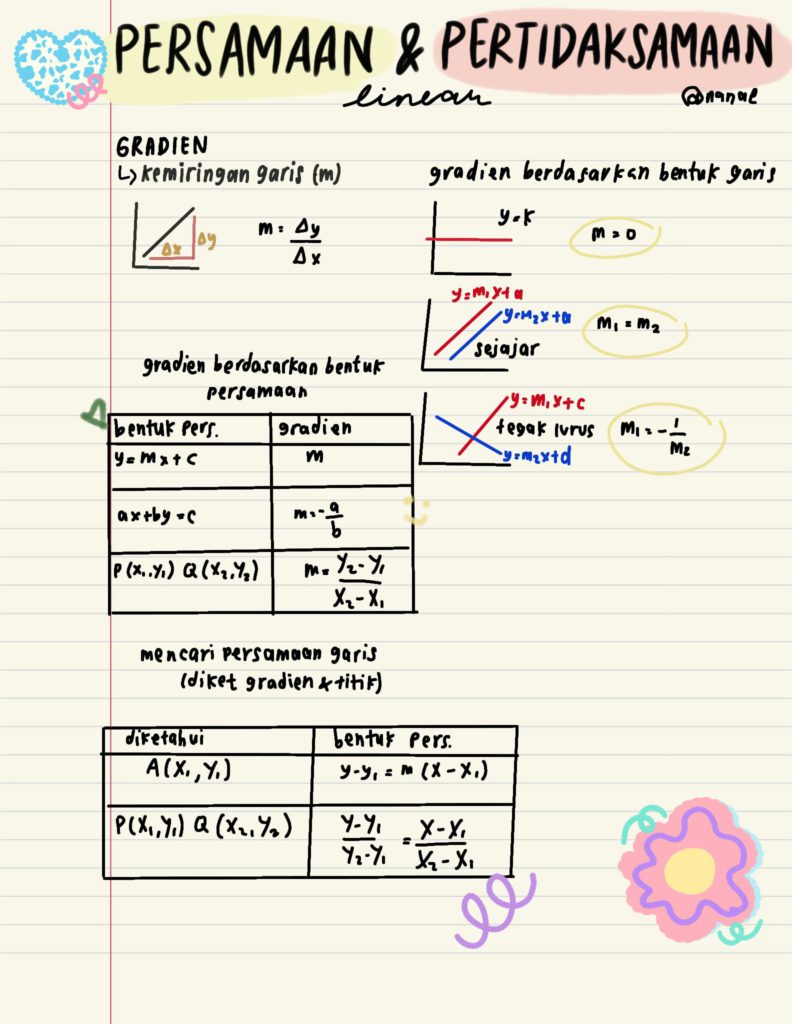 PERSAMAAN & PERTIDAKSAMAAN
linear
@nanal
GRADIEN
↳ kemiringan garis (m)
Δx
Δy
m = Δy/Δx
gradien berdasarkan bentuk garis
y=k
m = 0
y=m₁x+a
y=m₂x+a
sejajar
m₁ = m₂
y=m₁x+c
tegak lurus
y=m₂x+d
m₁ = -1/m₂
gradien berdasarkan bentuk
persamaan
bentuk pers. gradien
y = mx + c m
ax+by = c m = -a/b
P(x₁,y₁) Q(x₂,y₂) m = y₂-y₁/x₂-x₁
mencari persamaan garis
(diket gradien & titik)
diketahui bentuk pers.
A(x₁,y₁) y-y₁ = m (x-x₁)
P(x₁,y₁) Q(x₂,y₂) y-y₁/y₂-y₁ = x-x₁/x₂-x₁